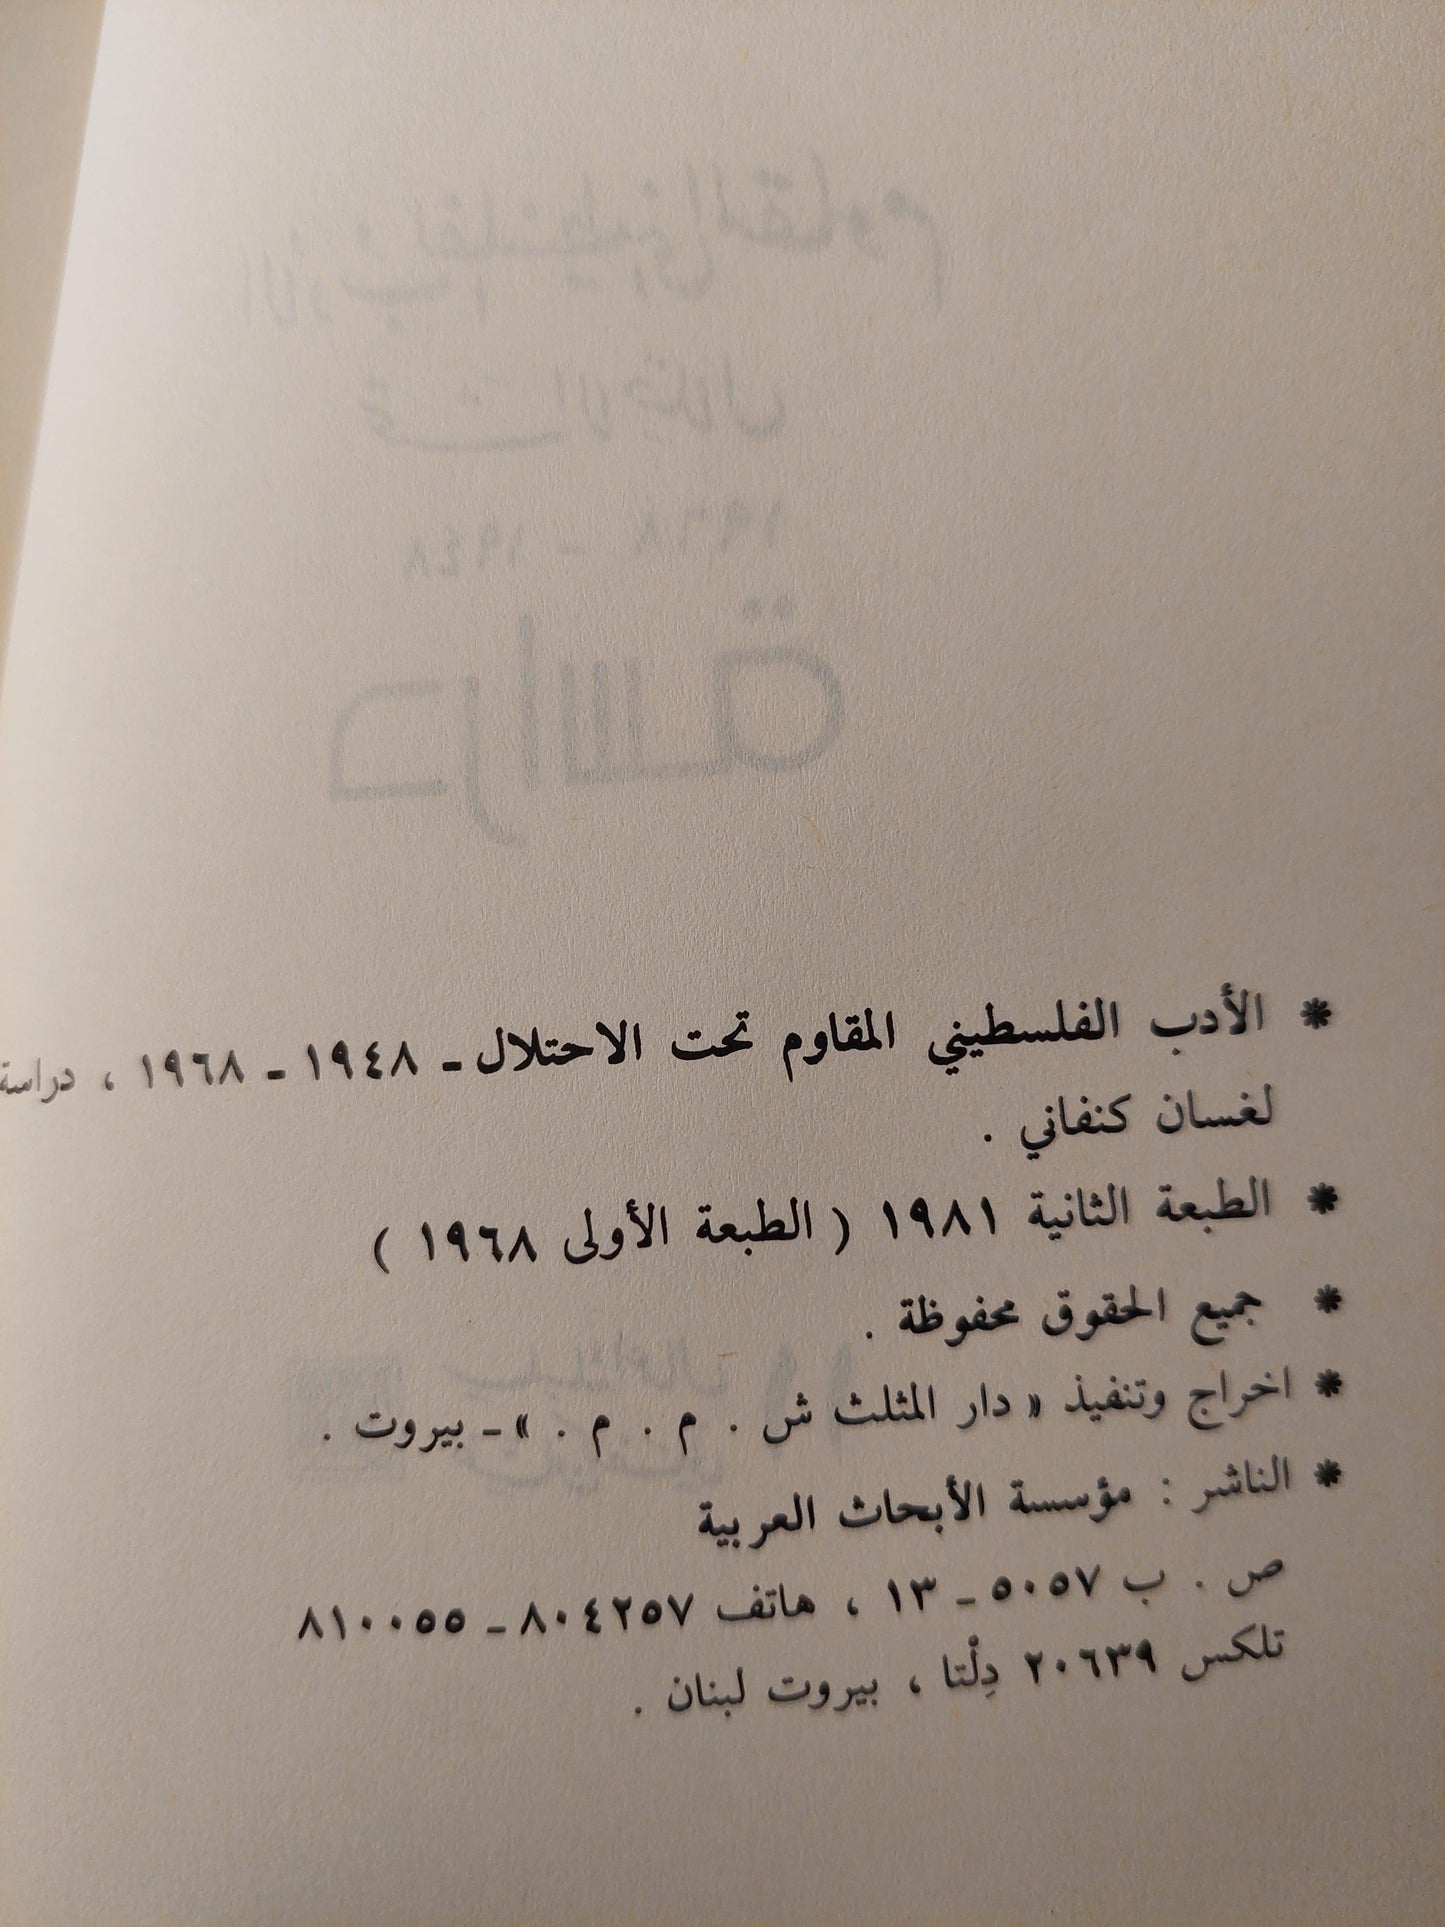 * الأدب الفلسطيني المقاوم تحت الاحتلال ـ ١٩٤٨ ـ ١٩٦٨ ، دراسة
لغسان كنفاني .
* الطبعة الثانية ١٩٨١ ( الطبعة الأولى ١٩٦٨ )
* جميع الحقوق محفوظة .
* اخراج وتنفيذ « دار المثلث ش . م . م . » ـ بيروت .
* الناشر : مؤسسة الأبحاث العربية
ص . ب ٥٠٥٧ ـ ١٣ ، هاتف ٨٠٤٢٥٧ ـ ٨١٠٠٥٥
تلكس ٢٠٦٣٩ دِلْتا ، بيروت لبنان .